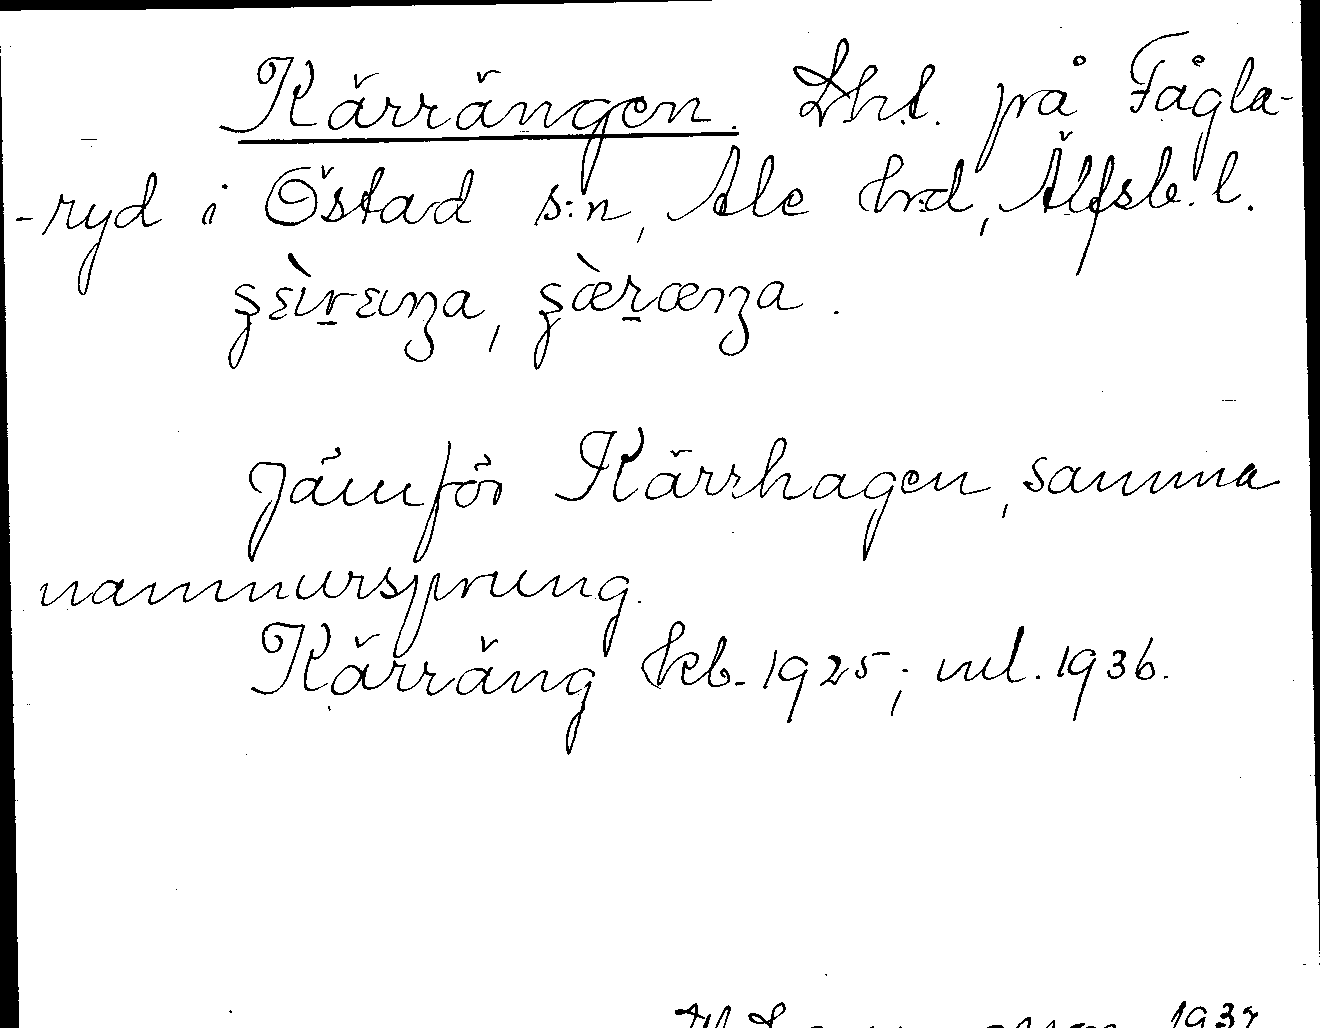 Kärrängen. Lht. på Fågla-
-ryd i Östad s:n, Ale hrd, Älfsb. l.
Jämför Kärrhagen, samma
namnursprung.
Kärräng kb. 1925; ml. 1936.
1937